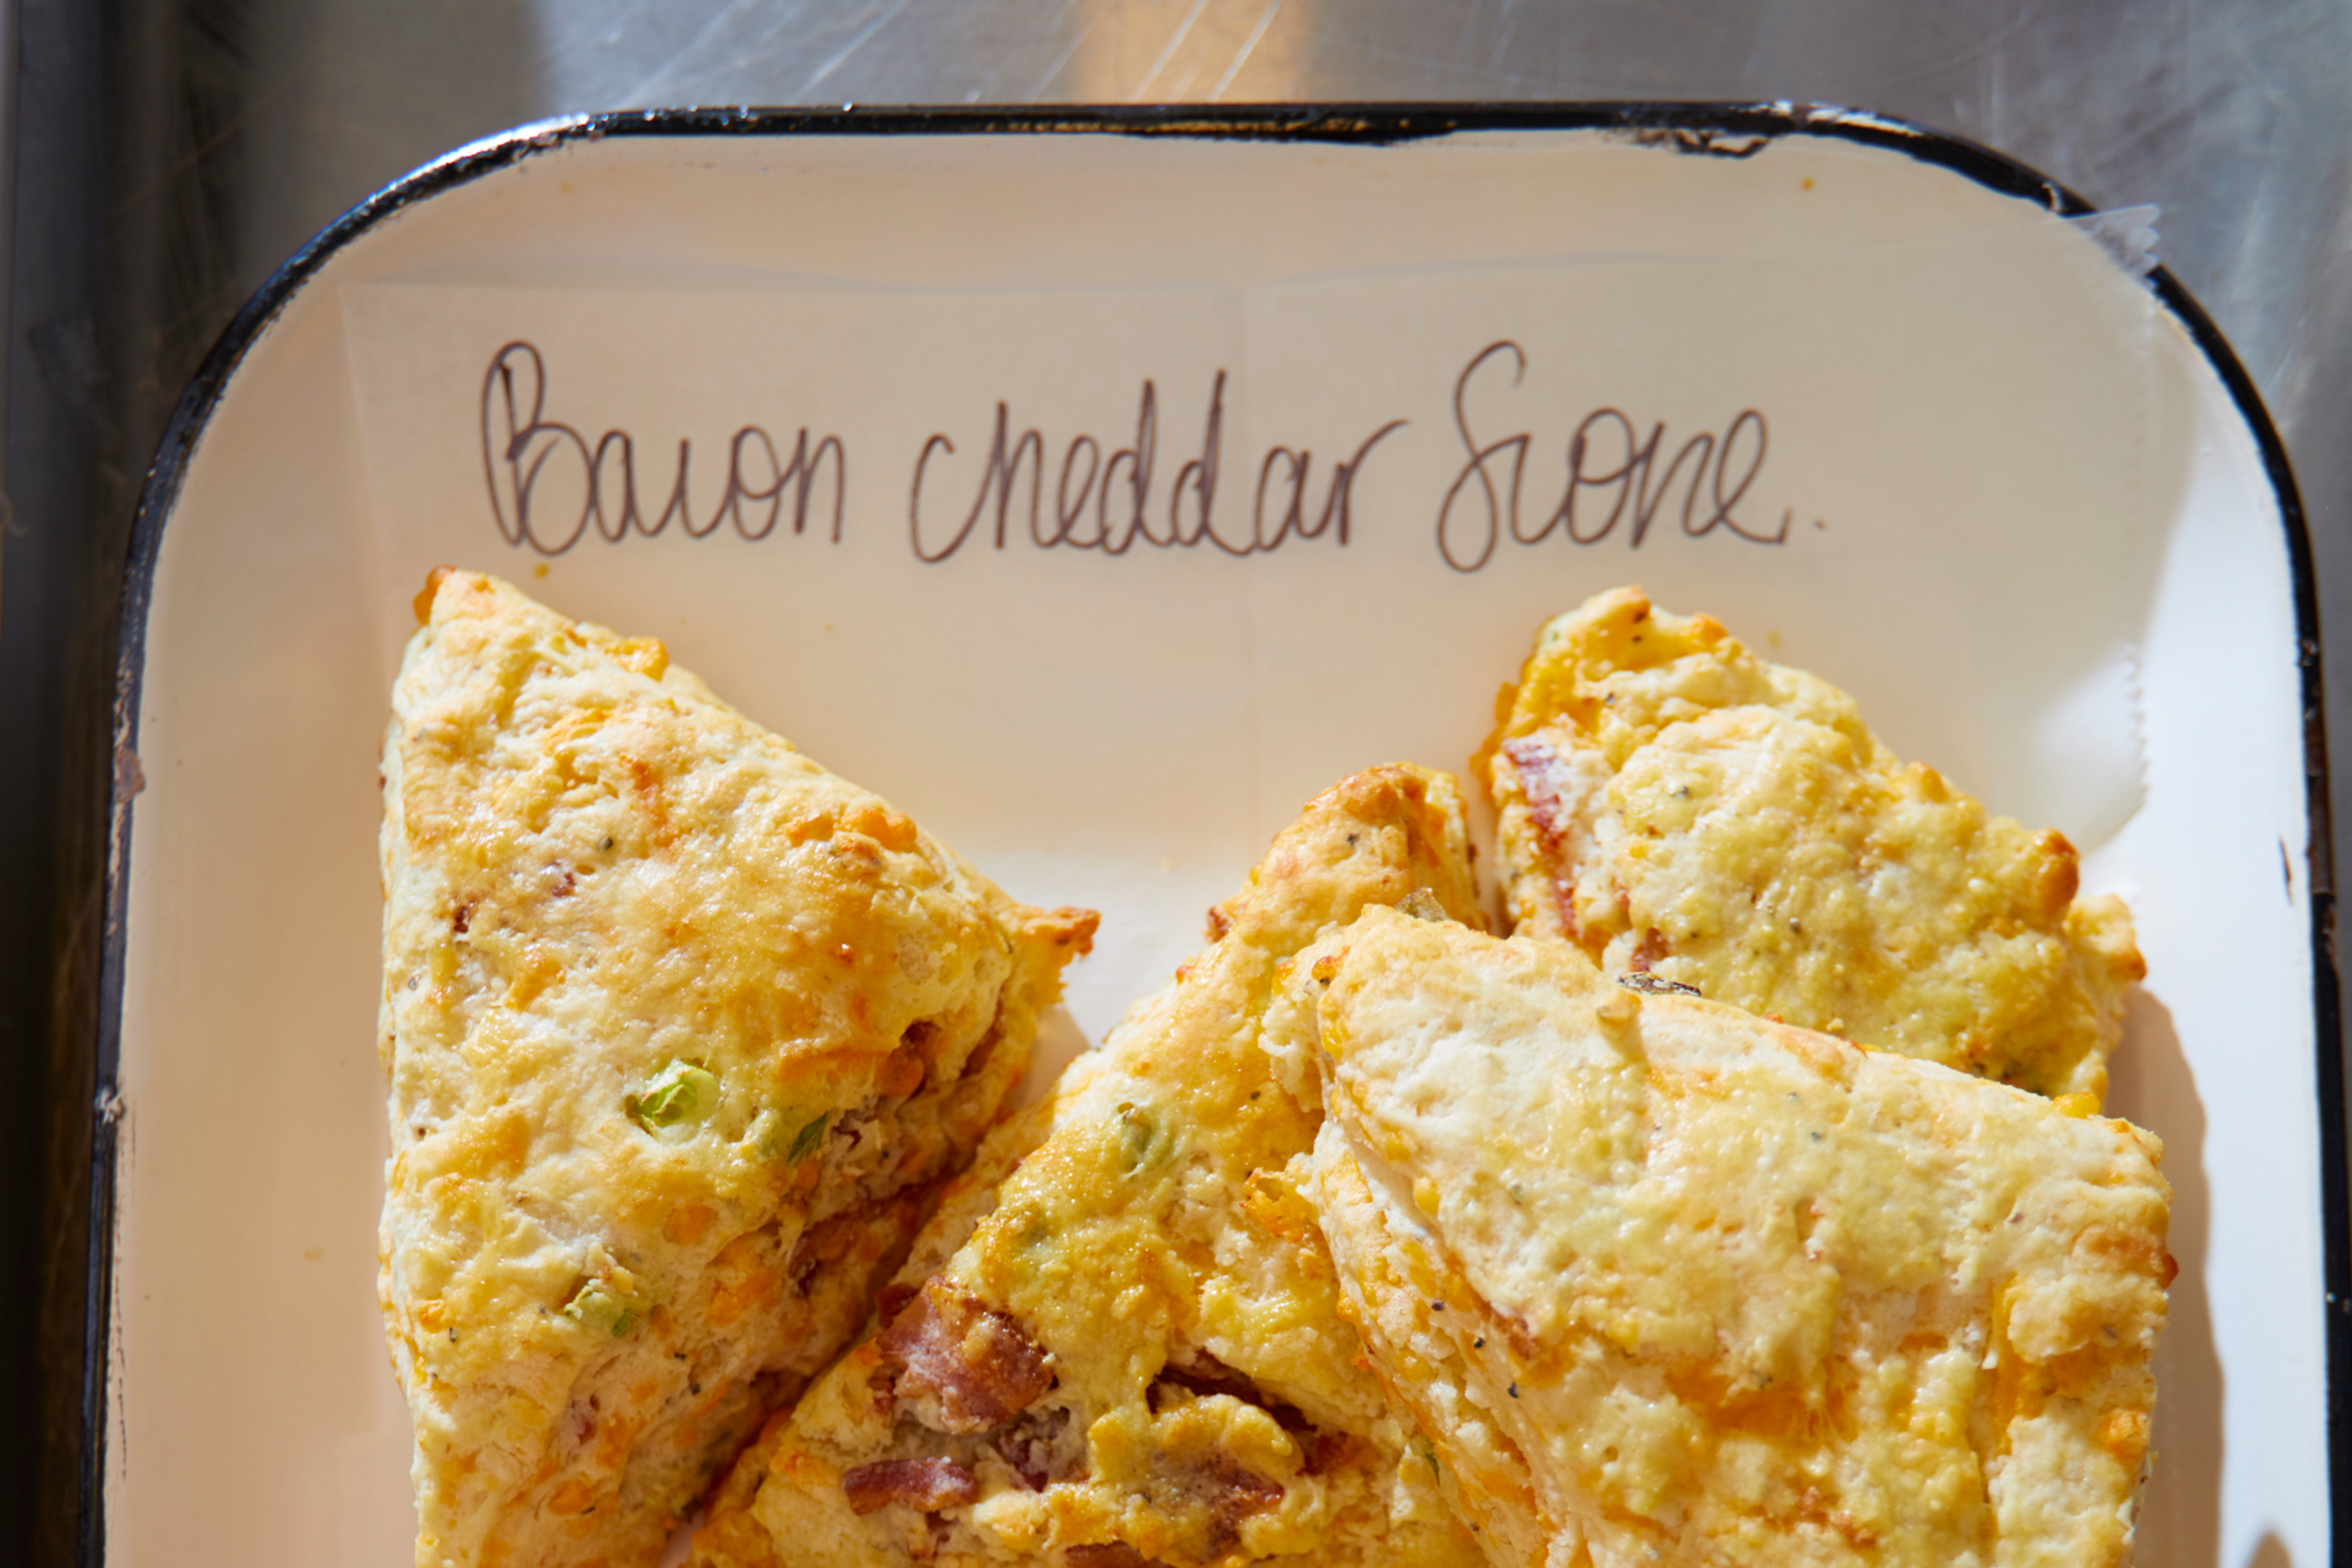 Bacon cheddar Scone.